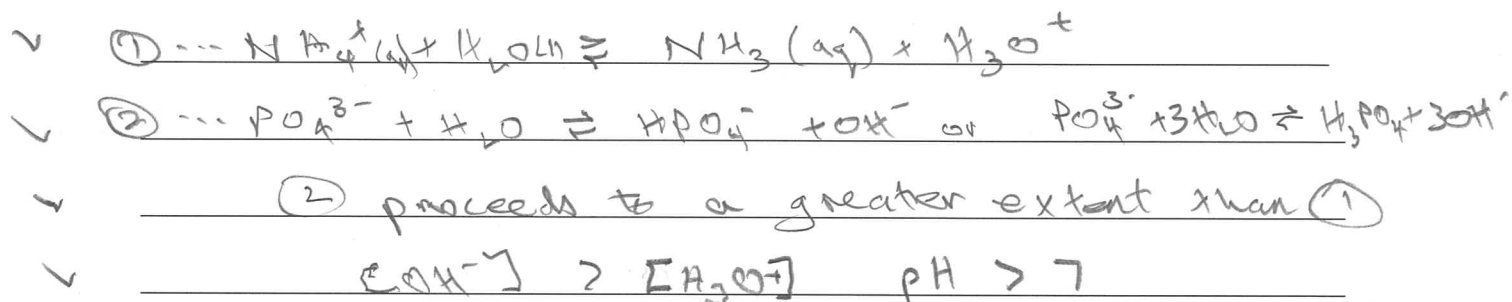 ✓ ① ... NH₄⁺(aq) + H₂O(l) ⇌ NH₃ (aq) + H₃O⁺
✓ ② ... PO₄³⁻ + H₂O ⇌ HPO₄⁻ + OH⁻ or PO₄³⁻ + 3H₂O ⇌ H₃PO₄ + 3OH⁻
✓ ② proceeds to a greater extent than ①
✓ [OH⁻] > [H₃O⁺] pH > 7